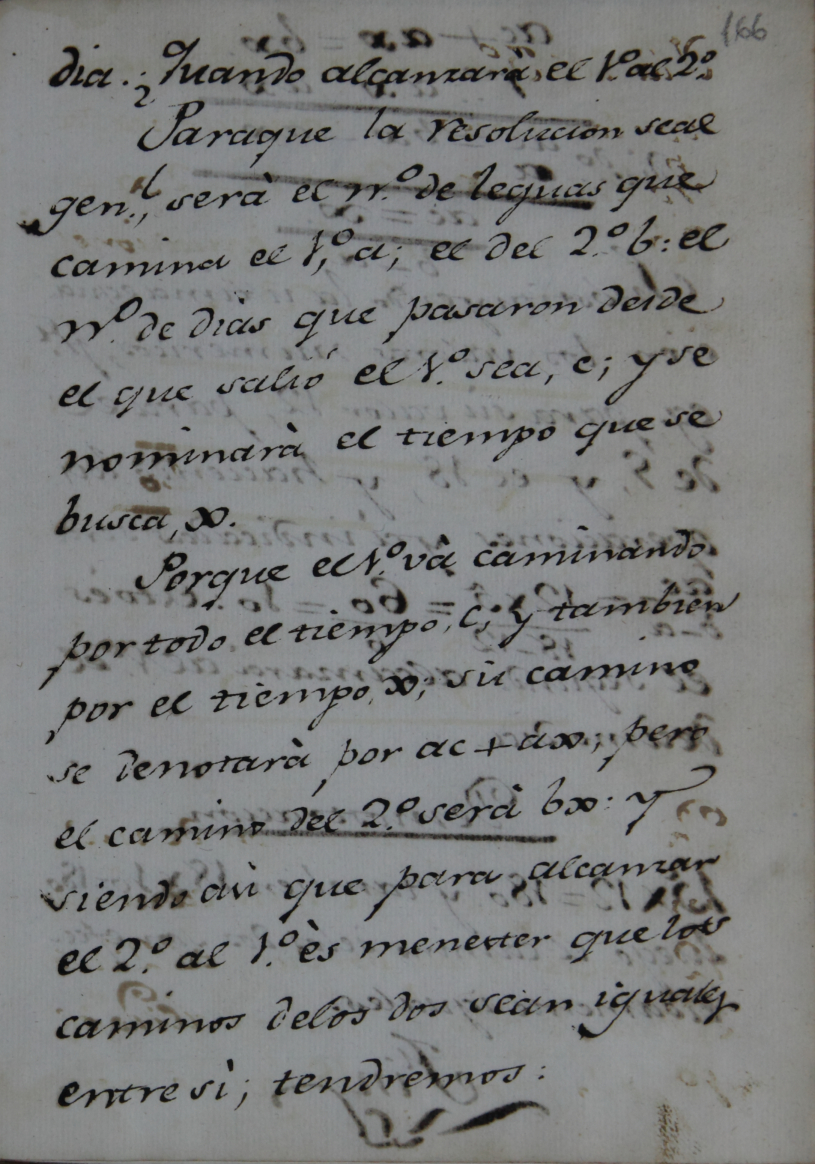 166
dia. ¿Quando alcanzarà el 1.º al 2.º
Paraque la resolucion seal
gen.l, serà el n.º de leguas que
camina el 1.º, a; el del 2.º b: el
nº. de dias que pasaron desde
el que salió el 1.º sea, c; y se
nominarà el tiempo que se
busca, x.
Porque el 1.º và caminando
por todo el tiempo, c; y tambien
por el tiempo, x; su camino
se denotarà por ac + ax; pero
el camino del 2.º serà bx: y
siendo asi que para alcanzar
el 2.º al 1.º ès menester que los
caminos delos dos sean iguales
entre sì; tendrèmos: